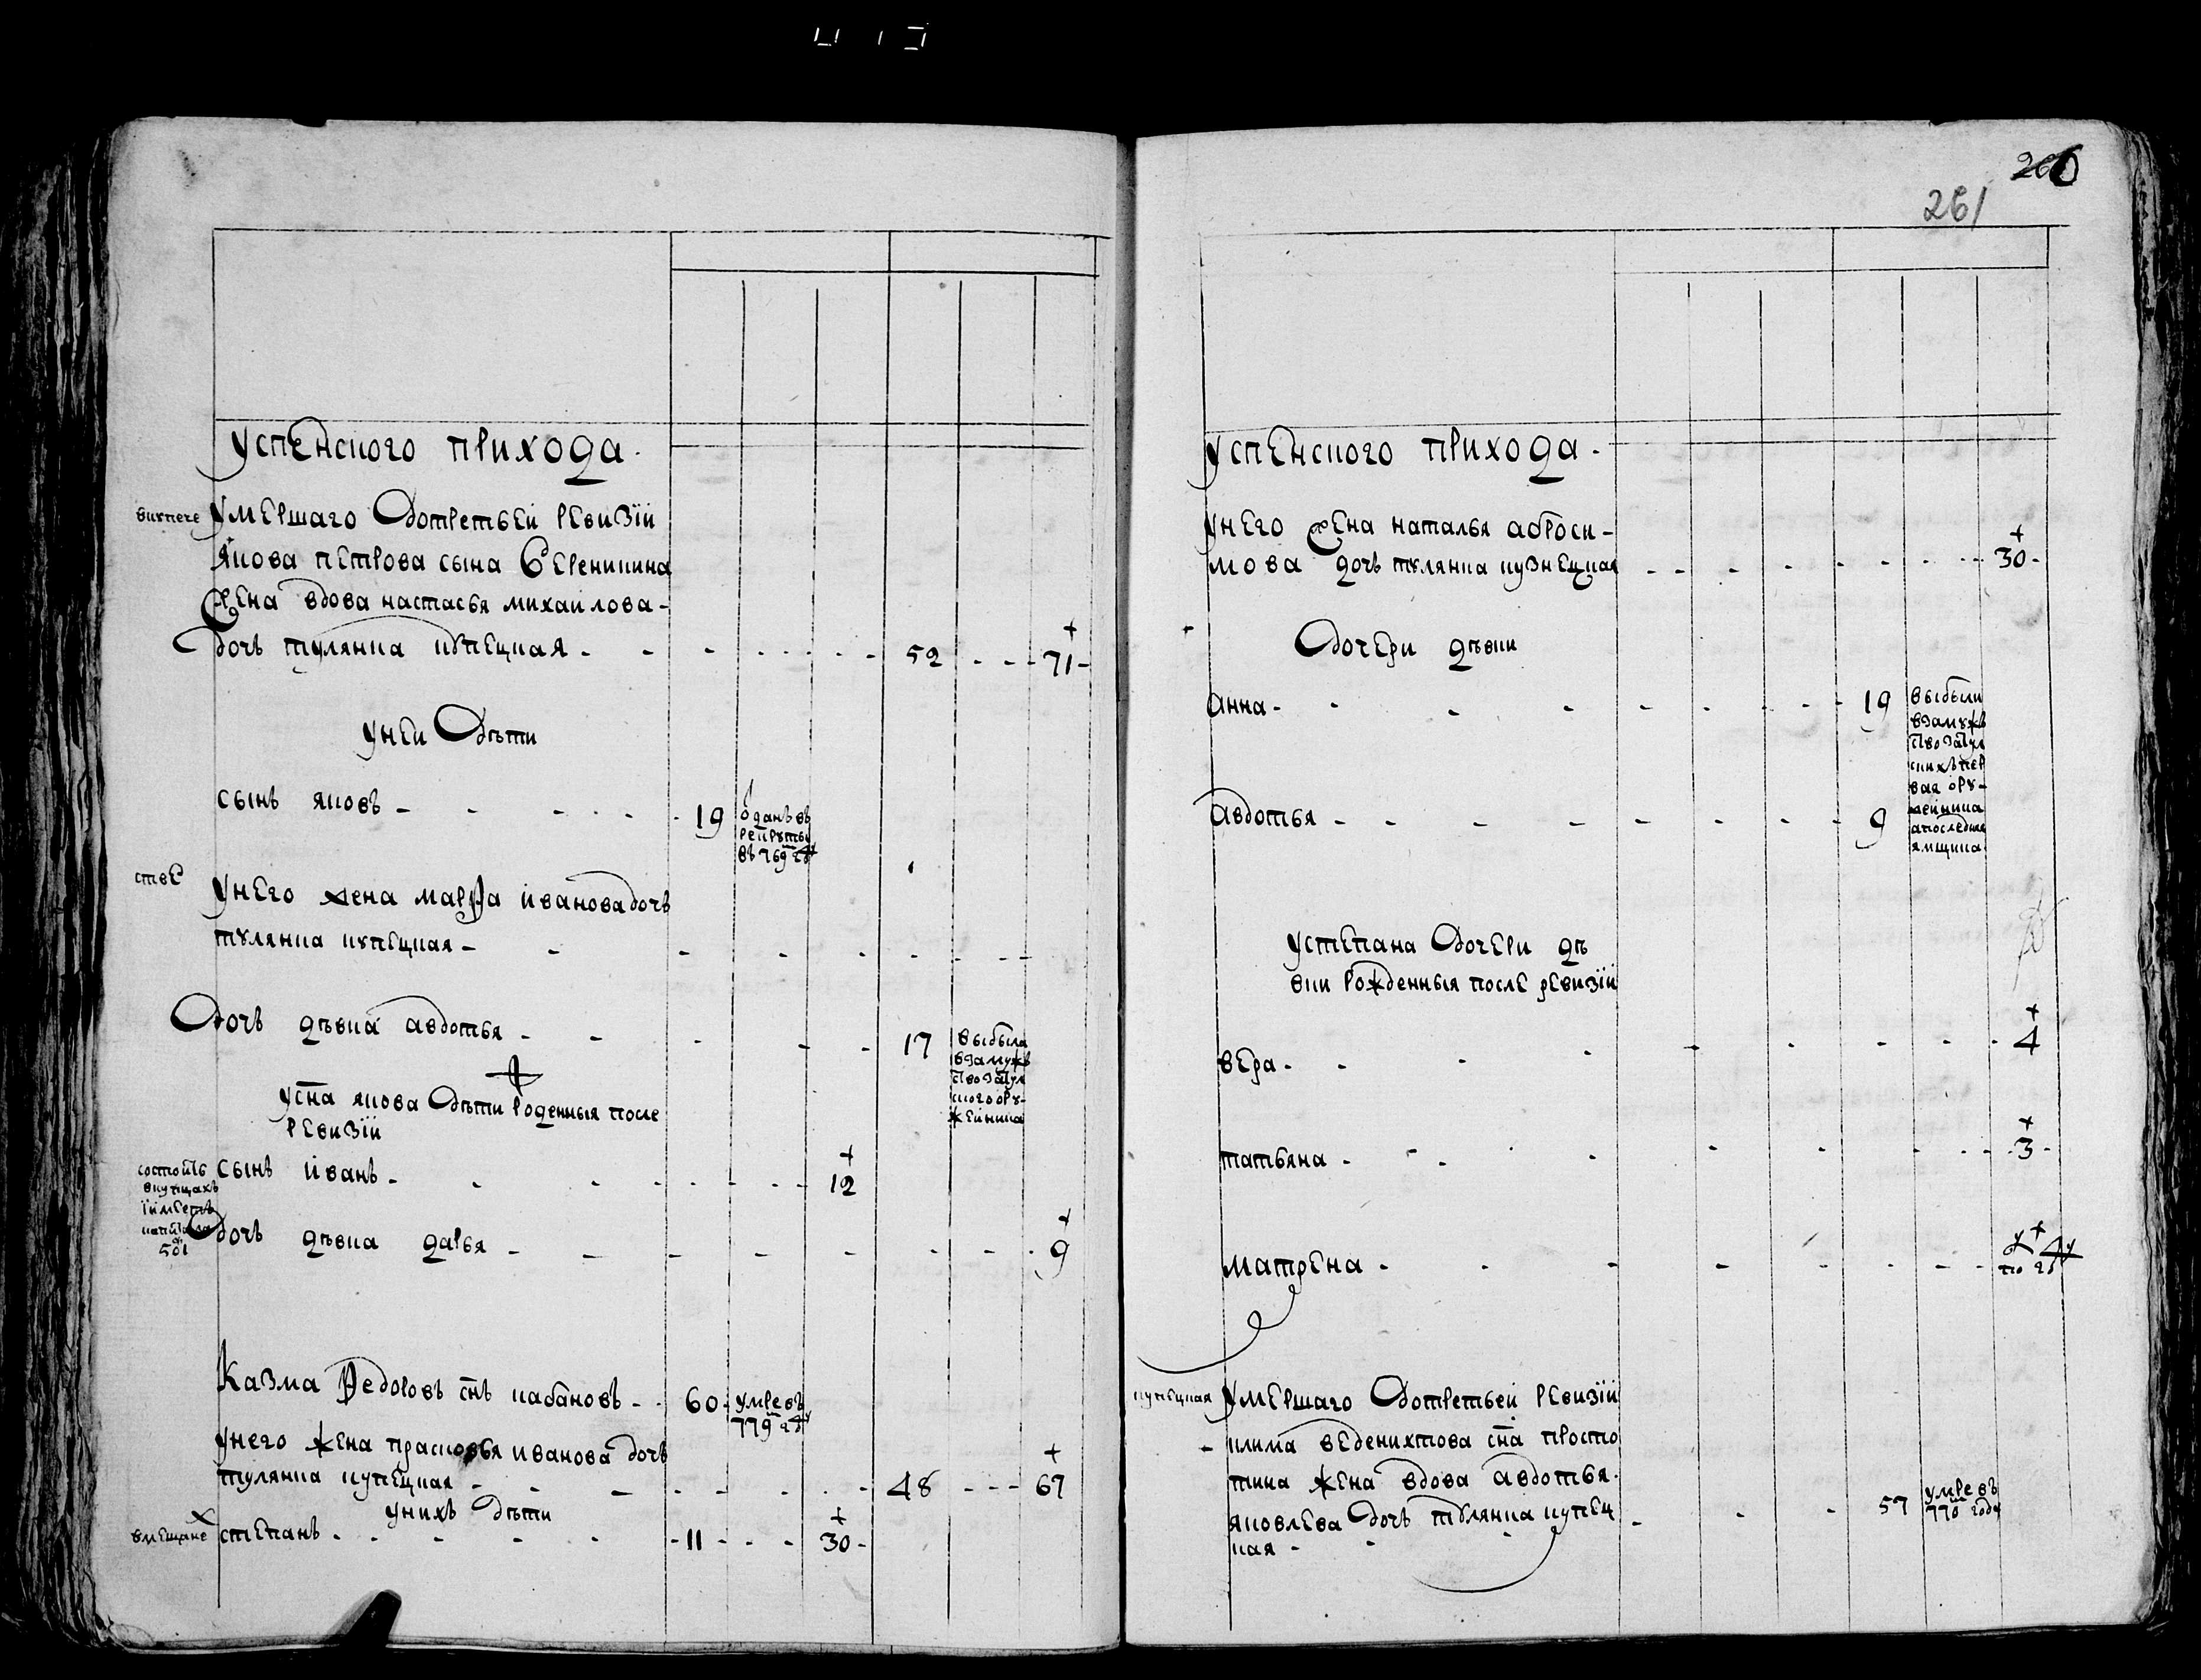 Успенского прихода.
умершаго до третьей ревизïи
якова петрова сына Серенинина
жена вдова настасья михаилова
дочь тулянка купецкая - 52 - 71
у ней дѣти
сынъ яковъ - 19 отданъ въ
рекруты
въ 769 году
стве
у него жена марфа иванова дочь
тулянка купецкая -
дочь дѣвка авдотья - 17 выбыла
взамужъ
ство за тул
ского ору-
жейника
у сна якова дѣти роденныя после
ревизïи
состоитъ
в купцахъ
ïимеетъ
капитала
501
сынъ иванъ - 12
дочь дѣвка дарья - 9
Казма Федоровъ снъ кабановъ - 60 умре въ
779 году
у него жена прасковья иванова дочь
тулянка купецкая - 48 - 67
у нихъ дѣти
вмещане степанъ - 11 - 30
261
Успенского прихода.
у него жена наталья аброси-
мова дочь тулянка кузнецкая - 30
дочери дѣвки
анна - 19 выбыли
взамужъ
ство за тул
скихъ пер
вая ору-
жейника
а последняя
ямщика
авдотья - 9
у степана дочери дѣ
вки рожденныя после ревизïи
вера - 4
татьяна - 3
матрена - по году
купецкая умершаго до третьей ревизïи
клима веденихтова сна просто
тина жена вдова авдотья
яковлева дочь тулянка купец
кая - 57 умре въ
770 году